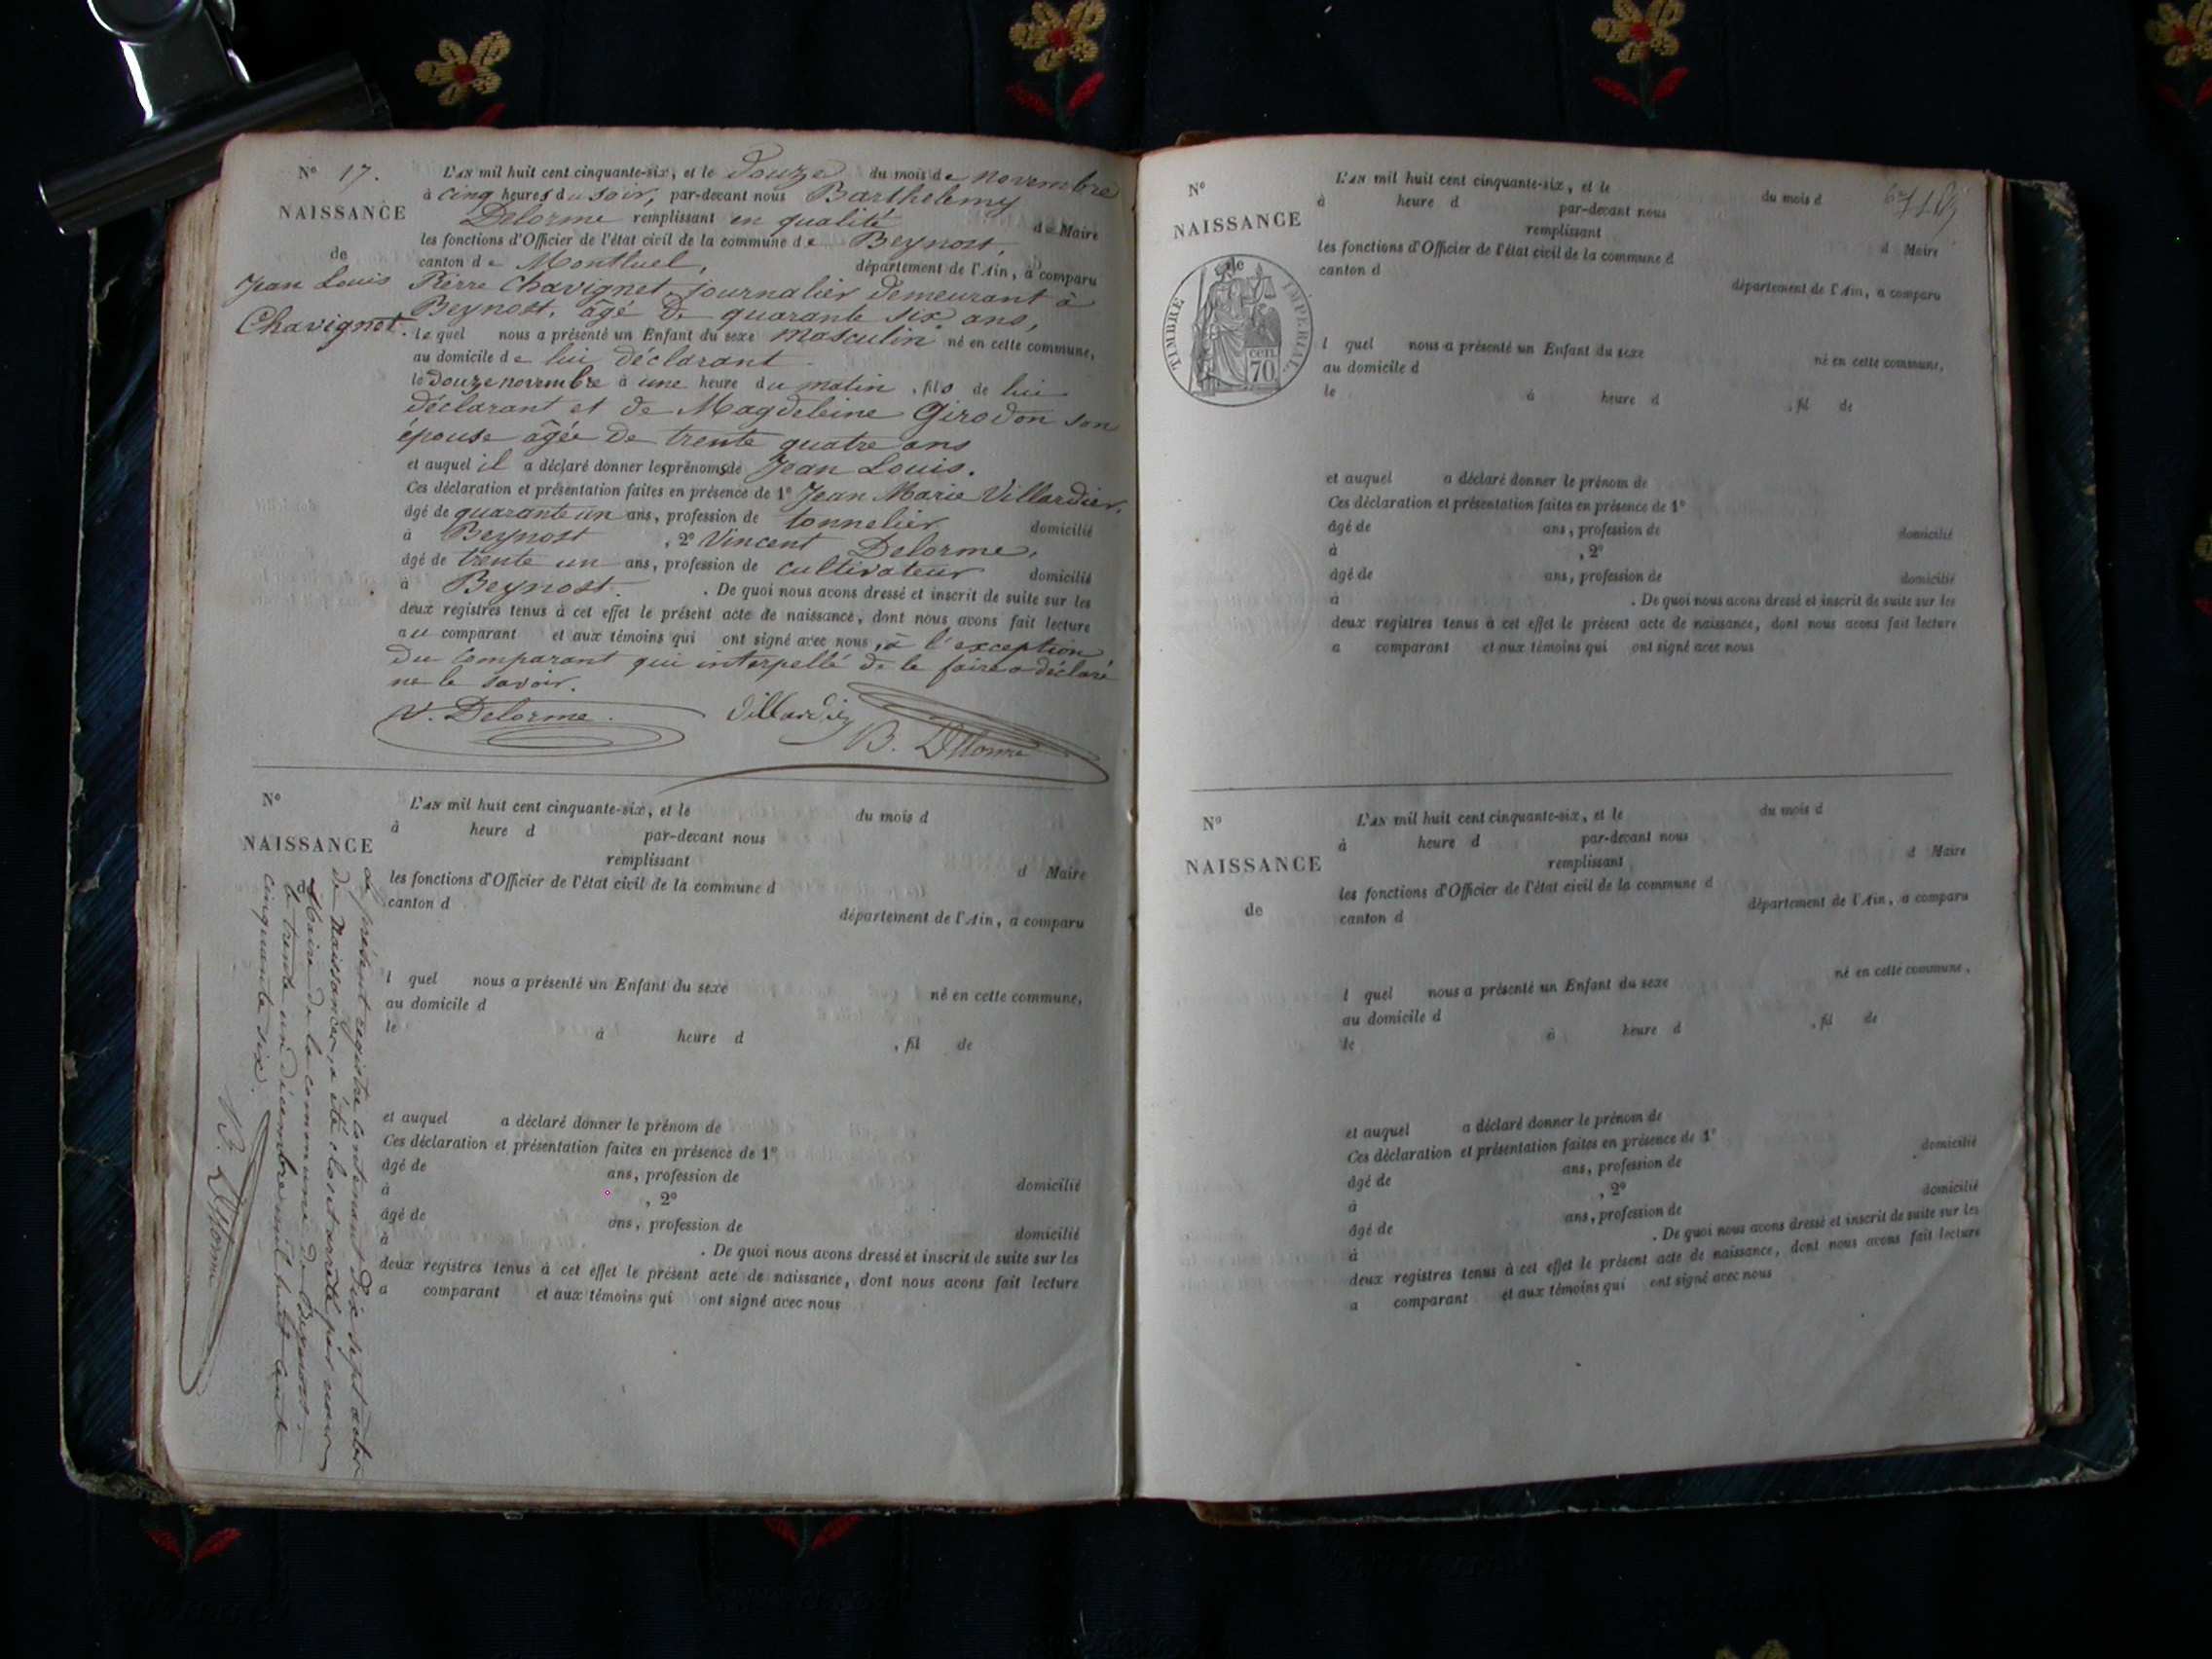 N° 17.
NAISSANCE
de
Jean Louis
Chavignet.
L'AN mil huit cent cinquante-six, et le Douze du mois de novembre
à cinq heures du soir, par-devant nous Barthelemy
Delorme remplissant en qualité de Maire
les fonctions d'Officier de l'état civil de la commune de Beynost,
canton de Montluel, département de l'Ain, a comparu
Pierre Chavignet, journalier demeurant à
Beynost, âgé de quarante six ans,
lequel nous a présenté un Enfant du sexe masculin né en cette commune,
au domicile de lui déclarant
le Douze novembre à une heure du matin, fils de lui
déclarant et de Magdeleine Girodon son
épouse âgée de trente quatre ans
et auquel il a déclaré donner les prénoms de Jean Louis.
Ces déclaration et présentation faites en présence de 1° Jean Marie Villardier,
âgé de quarante un ans, profession de tonnelier domicilié
à Beynost, 2° Vincent Delorme,
âgé de trente un ans, profession de cultivateur domicilié
à Beynost. De quoi nous avons dressé et inscrit de suite sur les
deux registres tenus à cet effet le présent acte de naissance, dont nous avons fait lecture
au comparant et aux témoins qui ont signé avec nous, à l'exception
du comparant qui interpellé de le faire a déclaré
ne le savoir.
V. Delorme. Villardier B. Delorme
N°
NAISSANCE
L'AN mil huit cent cinquante-six, et le du mois d
à heure d par-devant nous
remplissant d Maire
les fonctions d'Officier de l'état civil de la commune d
canton d département de l'Ain, a comparu
l quel nous a présenté un Enfant du sexe né en cette commune,
au domicile d
le à heure d , fil de
et auquel a déclaré donner le prénom de
Ces déclaration et présentation faites en présence de 1°
âgé de ans, profession de domicilié
à , 2°
âgé de ans, profession de domicilié
à . De quoi nous avons dressé et inscrit de suite sur les
deux registres tenus à cet effet le présent acte de naissance, dont nous avons fait lecture
a comparant et aux témoins qui ont signé avec nous
Le présent registre contenant Dix sept actes
de Naissances, a été clos et arrêté par nous
Maire de la commune de Beynost,
le trente un décembre mil huit cent
cinquante six.
B. Delorme
N°
NAISSANCE
de
TIMBRE IMPÉRIAL
70 cen.
L'AN mil huit cent cinquante-six, et le du mois d
à heure d par-devant nous
remplissant d Maire
les fonctions d'Officier de l'état civil de la commune d
canton d département de l'Ain, a comparu
l quel nous a présenté un Enfant du sexe né en cette commune,
au domicile d
le à heure d , fil de
et auquel a déclaré donner le prénom de
Ces déclaration et présentation faites en présence de 1°
âgé de ans, profession de domicilié
à , 2°
âgé de ans, profession de domicilié
à . De quoi nous avons dressé et inscrit de suite sur les
deux registres tenus à cet effet le présent acte de naissance, dont nous avons fait lecture
a comparant et aux témoins qui ont signé avec nous
N°
NAISSANCE
de
L'AN mil huit cent cinquante-six, et le du mois d
à heure d par-devant nous
remplissant d Maire
les fonctions d'Officier de l'état civil de la commune d
canton d département de l'Ain, a comparu
l quel nous a présenté un Enfant du sexe né en cette commune,
au domicile d
le à heure d , fil de
et auquel a déclaré donner le prénom de
Ces déclaration et présentation faites en présence de 1°
âgé de ans, profession de domicilié
à , 2°
âgé de ans, profession de domicilié
à . De quoi nous avons dressé et inscrit de suite sur les
deux registres tenus à cet effet le présent acte de naissance, dont nous avons fait lecture
a comparant et aux témoins qui ont signé avec nous